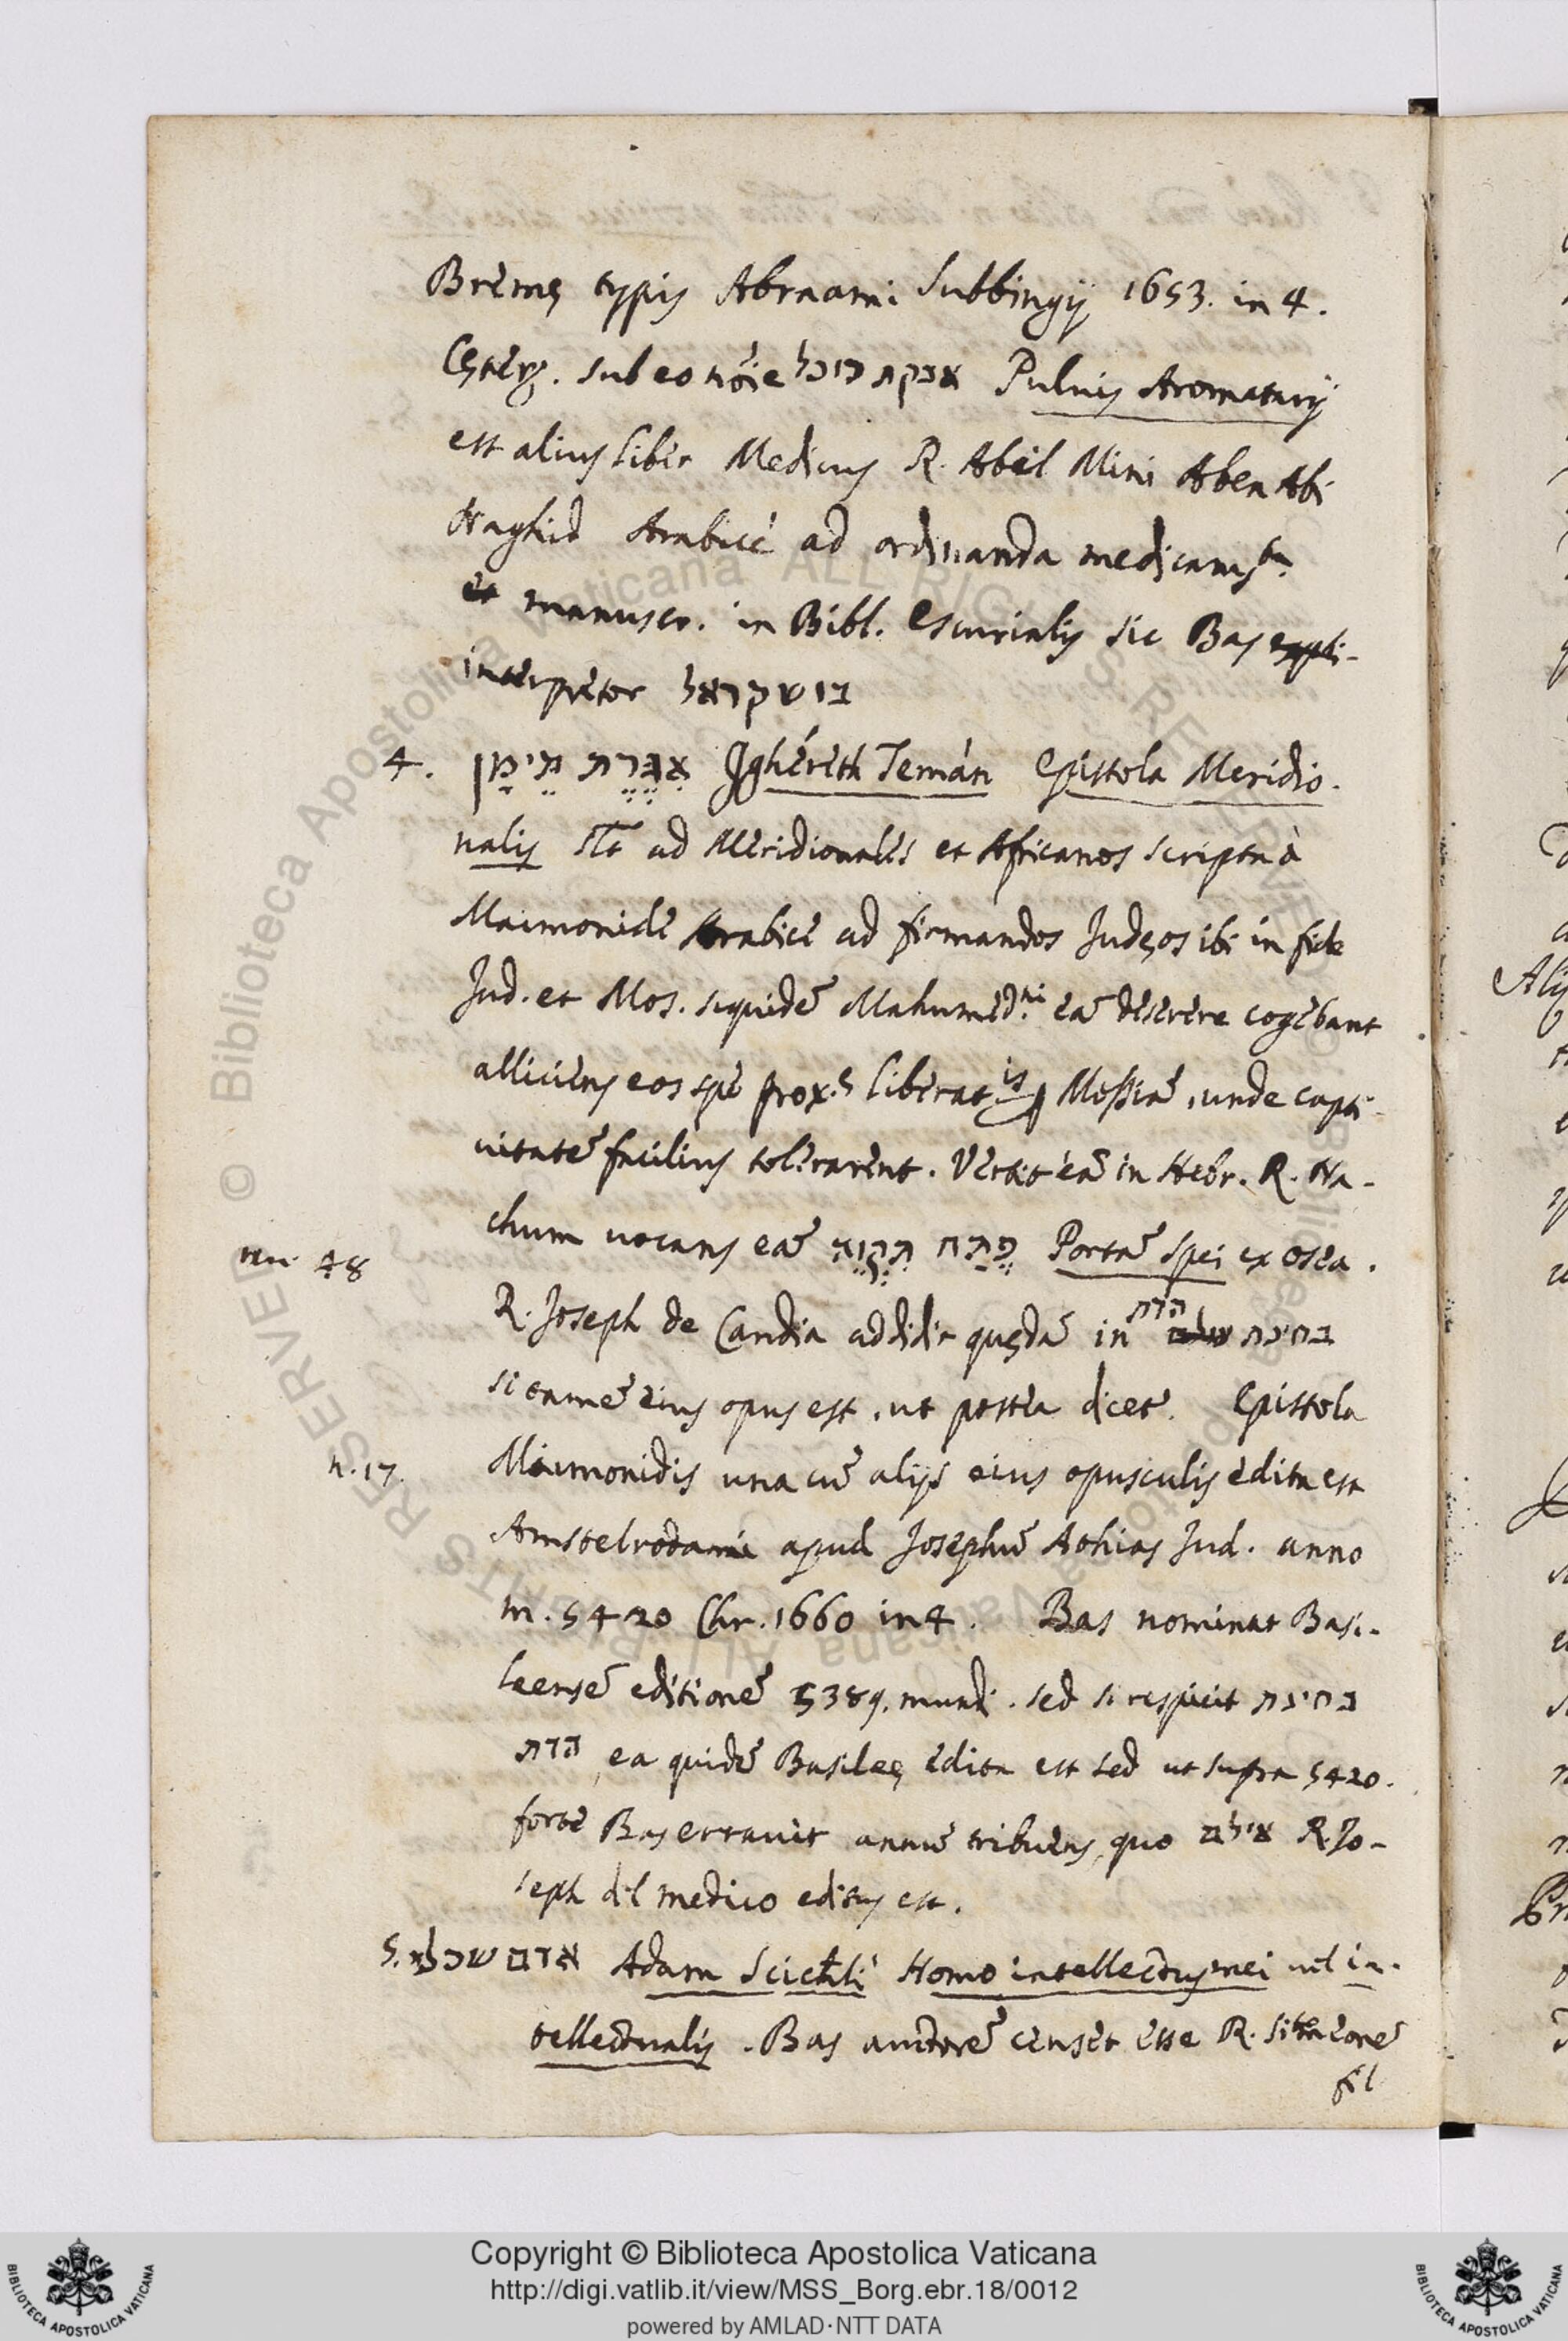 Bremę typis Abraami Lubbingij 1653. in 4.
Cęterũ. sub eo nõie אבקת רוכל Puluis Aromatarij
est alius liber Medicus R. Abil Mini Aben Abi
Naghid Arabicè ad ordinanda medicamẽta.
et manuscr. in Bibl. Escurialis sic Bas
interpretor בו שקראל
4. אִגֶּרֶת תֵימָן Jghéreth Temán Epistola Meridio-
nalis seu ad Meridionales et Africanos scripta à
Maimonide Arabice ad firmandos Judęos ibi in fide
Jud. et Mos. siquidẽ Mahumed.ni eã deserere cogebant
alliciens eos spe prox.ę liberat.is Messiæ, unde capti-
uitatẽ facilius tolerarent. Vertit eã in Hebr. R. Na-
chum uocans eã פֶּתַח תִּקְוָה Portã Spei ex Osea.
48
R. Joseph de Candia addidit quędã in בחינת הדת
si tamẽ eius opus est, ut postea dicet. Epistola
n. 17.
Maimonidis una cũ alijs eius opusculis edita est
Amstelrodami apud Josephũ Athias Jud. anno
m. 5420 Chr. 1660 in 4. Bas nominat Basi-
leensẽ editionẽ 5389. mundi. sed si respicit בחינת
הדת ea quidẽ Basileę edita est sed ut supra 5420.
forte Bas errauit annũ tribuens, quo אילם R. Jo-
seph del medico editus est.
5. אדם שכלי Adam Scichlì Homo intellectus mei uel in-
tellectualis. Bas auctorẽ censet esse R. Simeonẽ
fil
Copyright © Biblioteca Apostolica Vaticana
http://digi.vatlib.it/view/MSS_Borg.ebr.18/0012
powered by AMLAD·NTT DATA